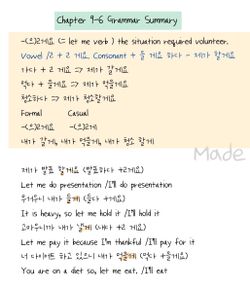 Chapter 9-6 Grammar Summary
-(으)ㄹ게요 (= let me verb) the situation required volunteer.
Vowel /ㄹ + ㄹ 게요. Consonant + 을 게요 하다 - 제가 할게요
가다 + ㄹ 게요 => 제가 갈게요
먹다 + 을게요 => 제가 먹을게요
청소하다 => 제가 청소할게요
Formal Casual
-(으)ㄹ게요 -(으)ㄹ게
내가 갈게, 내가 먹을게, 내가 청소 할게
Made
제가 발표 할게요 (발표하다 +ㄹ게요)
Let me do presentation /I'll do presentation
무거우니 내가 들게 (들다 +ㄹ게)
It is heavy, so let me hold it /I'll hold it
고마우니까 내가 낼게 (내다 +ㄹ게)
Let me pay it because I'm thankful /I'll pay for it
너 다이어트 하고 있으니 내가 먹을게 (먹다 +을게)
You are on a diet so, let me eat. /I'll eat